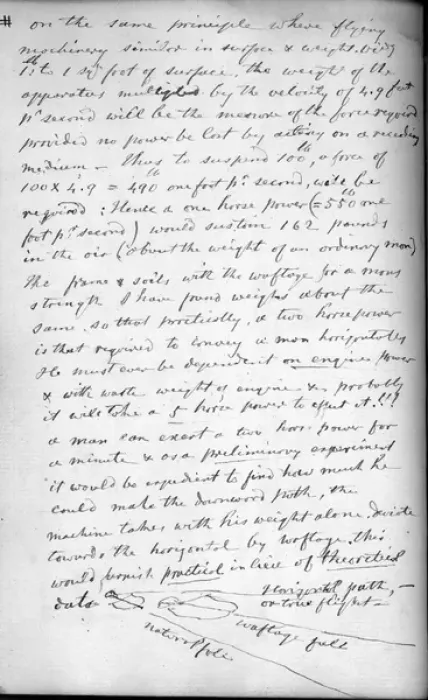 # on the same principle where flying
machinery similar in surface & weight. viz
1 lb to 1 sq. foot of surface, the weight of the
apparatus multiplied by the velocity of 4.9 feet
pr. second will be the measure of the force required
provided no power be lost by acting on a receding
medium - Thus to suspend 100 lb, a force of
100 X 4.9 = 490 lb one foot pr. second, will be
required: Hence a one horse power (= 550 lb one
foot pr. second) would sustain 162 pounds
in the air (about the weight of an ordinary man)
The frame & sails with the waftage for a mans
strength I have found weighs about the
same, so that practically, a two horse power
is that required to convey a man horizontally
He must ever be dependent on engine power
& with waste weight of engine &c probably
it will take a 5 horse power to effect it!!!
a man can exert a two horse power for
a minute & as a preliminary experiment
it would be expedient to find how much he
could make the downward path, the
machine takes with his weight alone, deviate
towards the horizontal by waftage, this
would furnish practical in lieu of theoretical
data
Horizontal path, -
or true flight -
waftage fall
natural fall